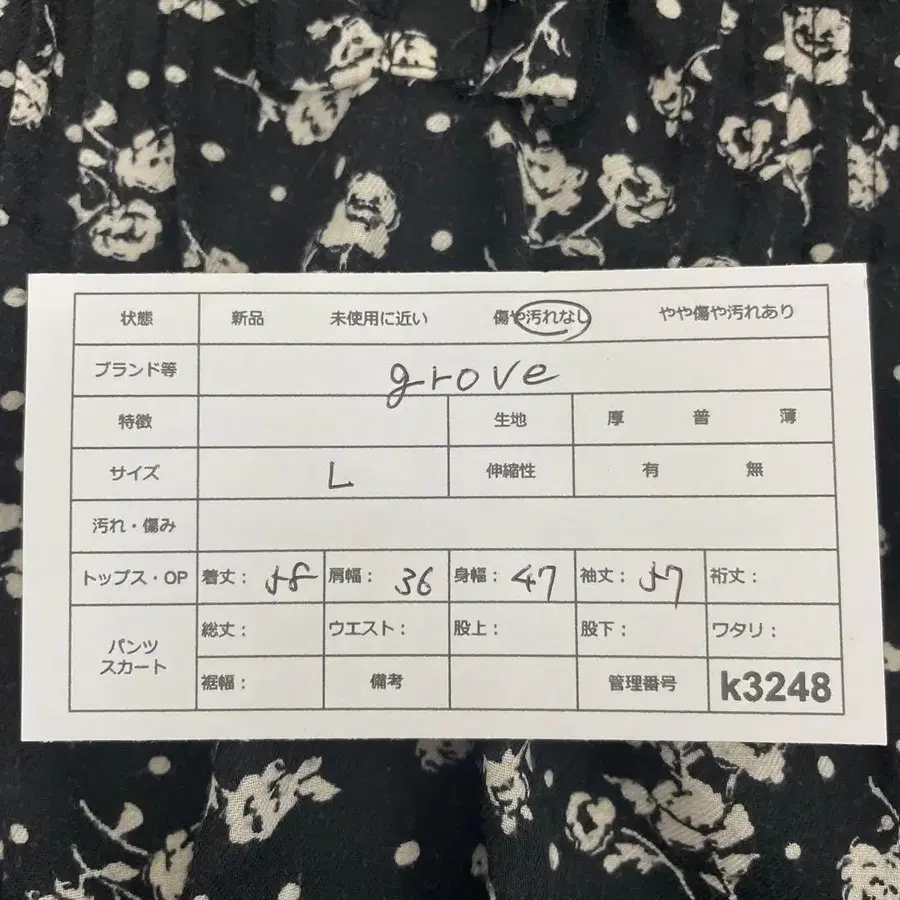 状態 新品 未使用に近い 傷や汚れなし やや傷や汚れあり
ブランド等 grove
特徴 生地 厚 普 薄
サイズ L 伸縮性 有 無
汚れ・傷み
トップス・OP 着丈: 58 肩幅: 36 身幅: 47 袖丈: 57 裄丈:
パンツ スカート 総丈: ウエスト: 股上: 股下: ワタリ:
裾幅: 備考 管理番号 k3248